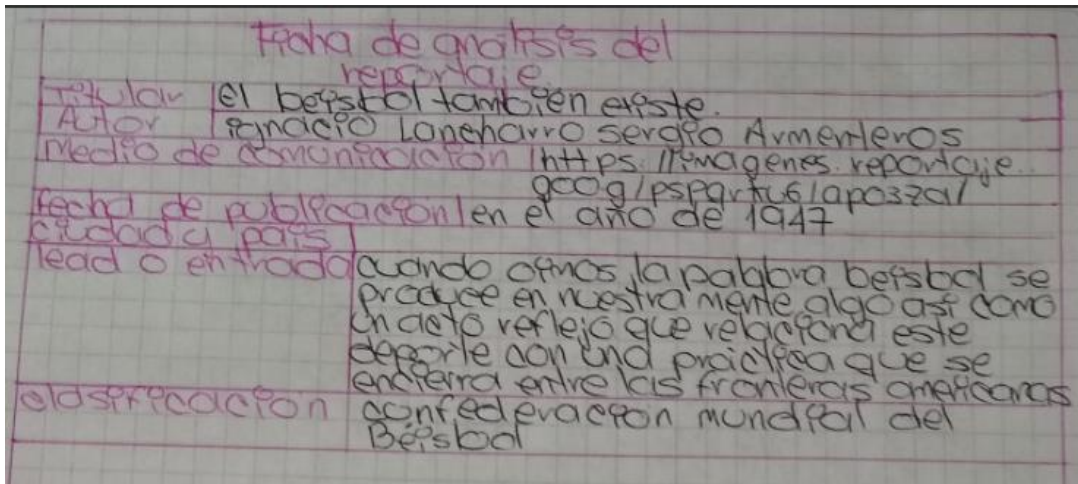 Ficha de análisis del
reportaje.
Titular | el beisbol también existe.
Autor | ignacio Loneharro sergio Armenteros
Medio de comunicación | https://imagenes.reportaje.
goog/psparku6/
fecha de publicación | en el año de 1947
ciudad y pais |
lead o entrada | cuando oimos la palabra beisbol se
produce en nuestra mente algo así como
un acto reflejo que relaciona este
deporte con una práctica que se
encierra entre las fronteras americanas
clasificación | confederación mundial del
Beisbol